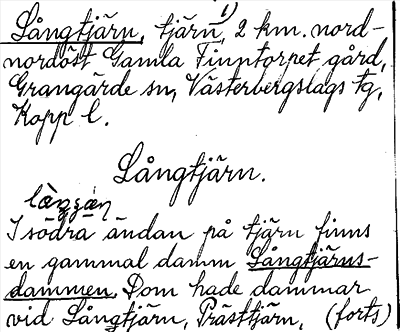 Långtjärn, tjärn, 1) 2 km. nord-
nordöst Gamla Finntorpet, gård,
Grangärde sn, Västerbergslags tg,
Kopp l.
Långtjärn.
I södra ändan på tjärn finns
en gammal damm Långtjärns-
dammen. Dom hade dammar
vid Långtjärn, Prästtjärn, (forts)